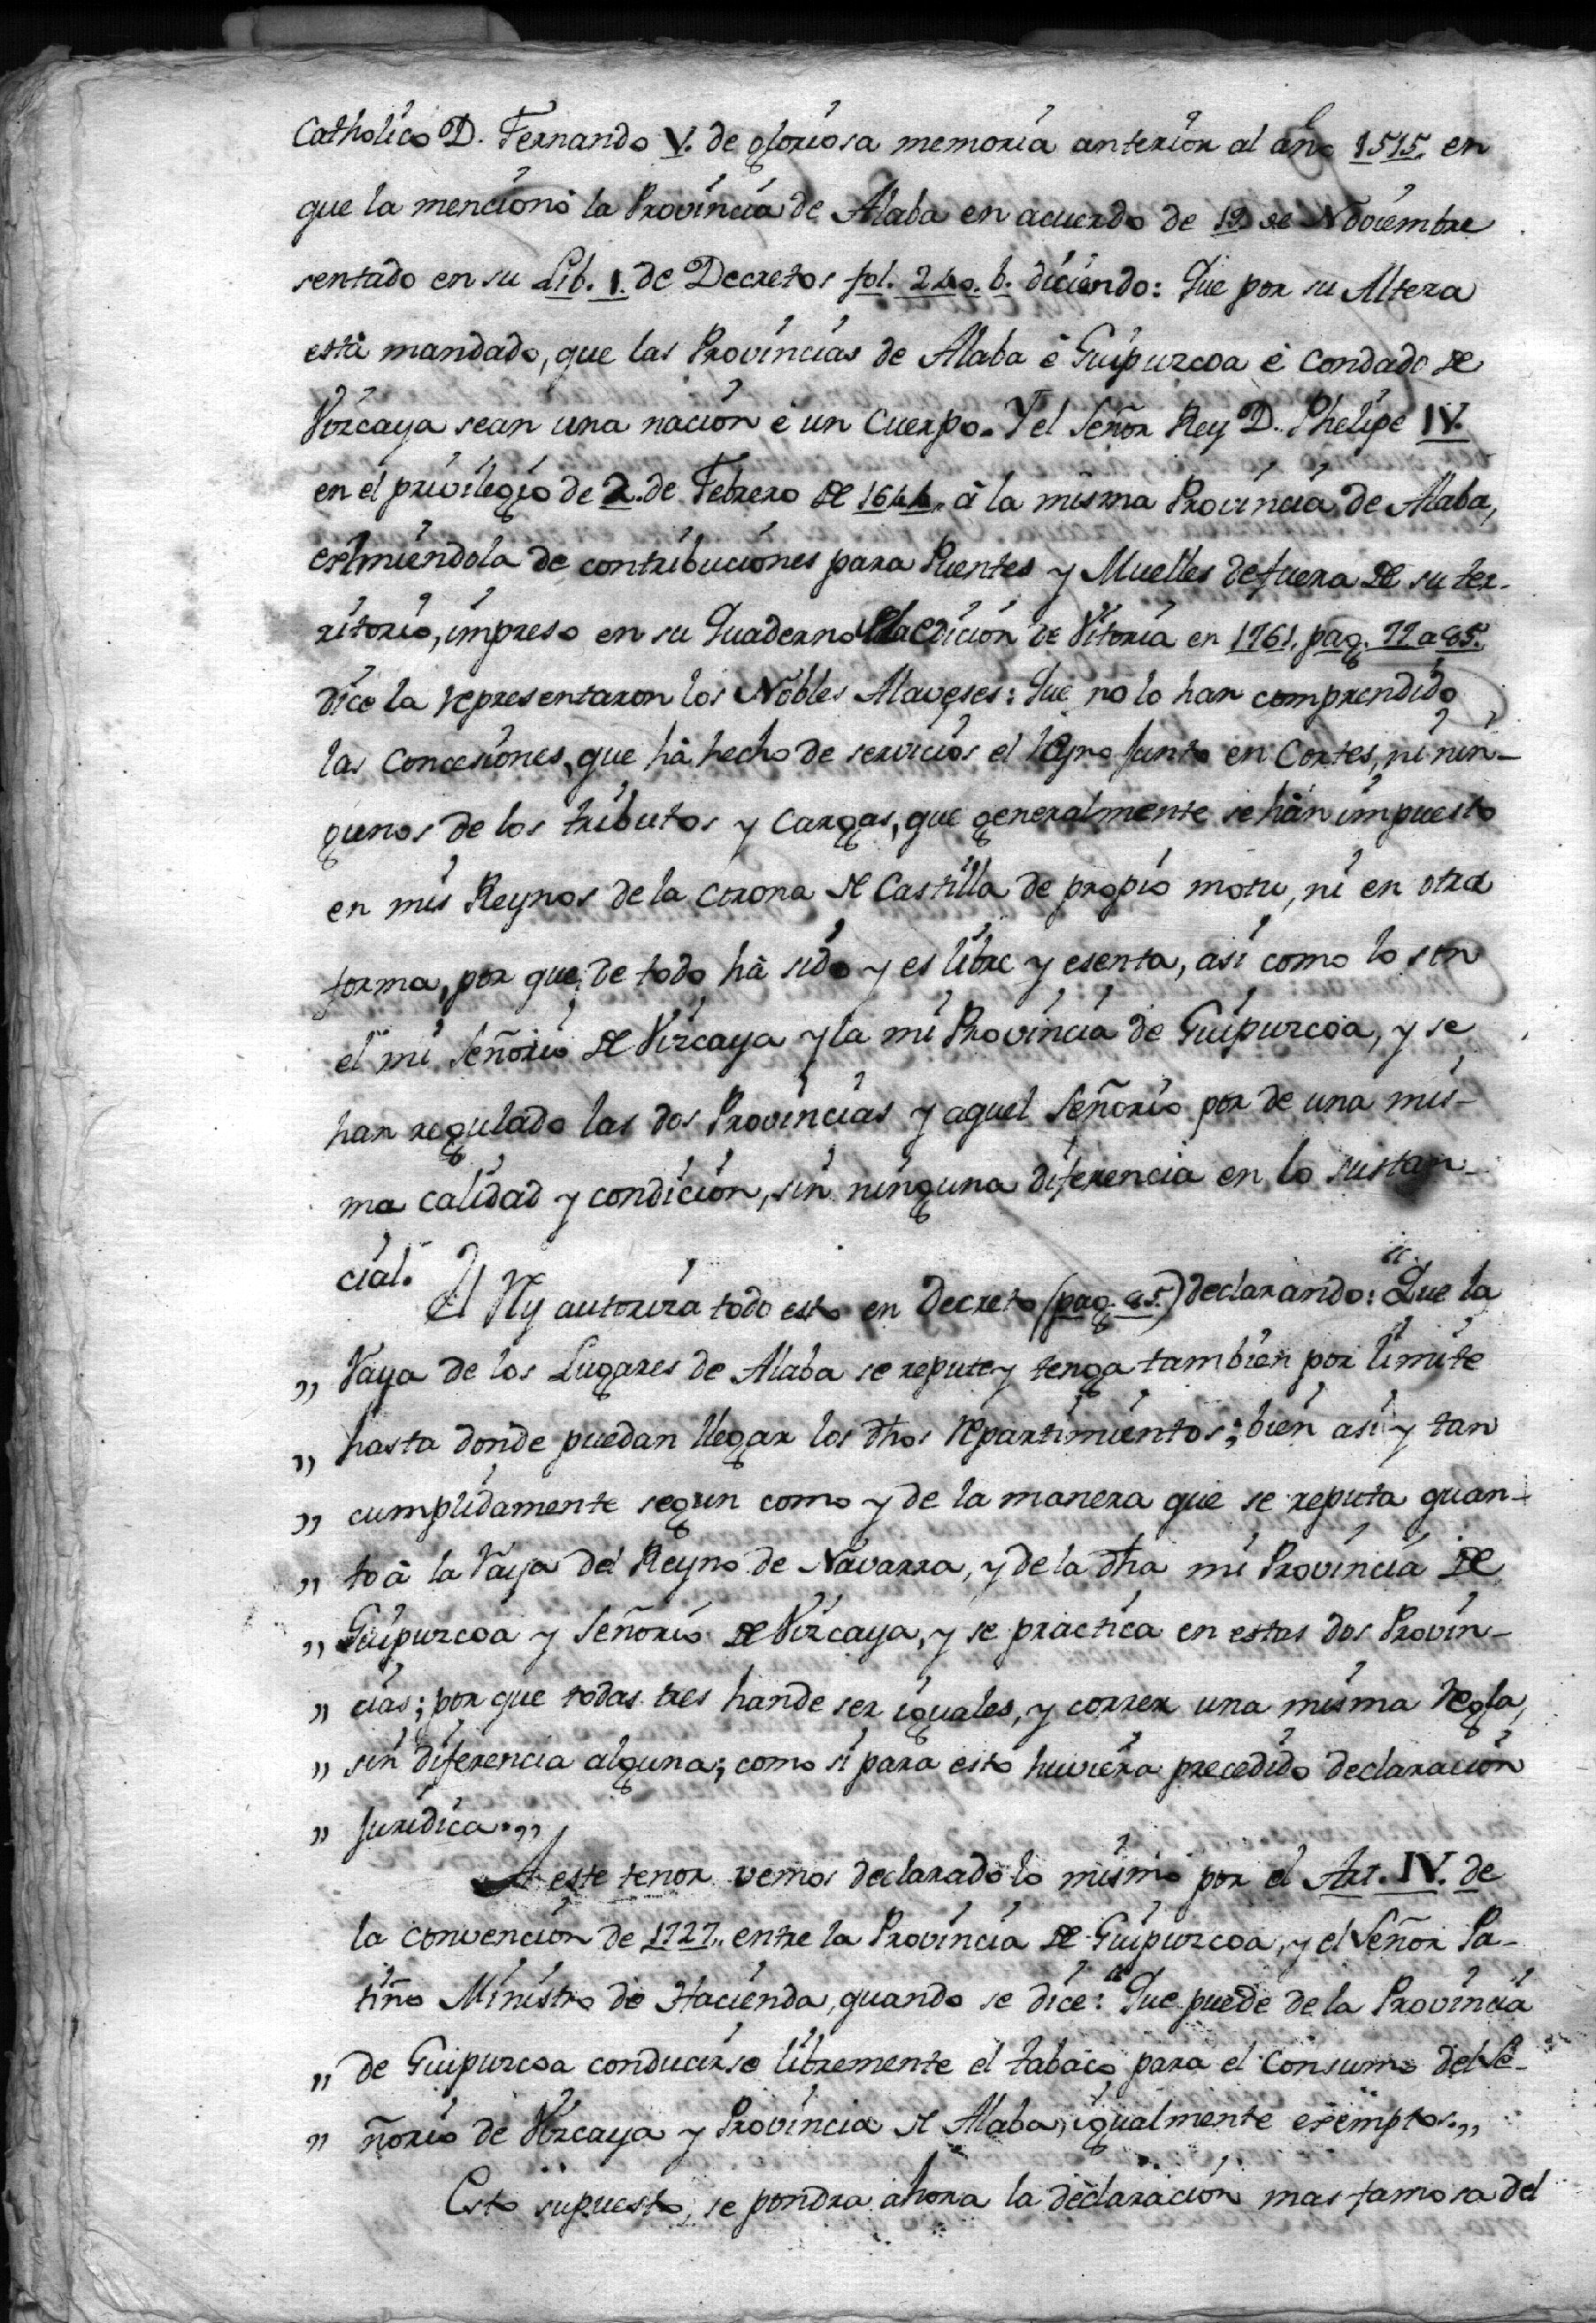 Catholico D. Fernando V. de gloriosa memoria anterior al año 1515. en
que la mencionó la Provincia de Alaba en acuerdo de 19. de Noviembre
sentado en su Lib. 1. de Decretos fol. 240. b. diciendo: Que por su Alteza
està mandado, que las Provincias de Alaba è Guipuzcoa è Condado de
Vizcaya sean una nacion è un Cuerpo. Y el Señor Rey D. Phelipe IV.
en el privilegio de 2. de Febrero de 1644. à la misma Provincia de Alaba,
eximiendola de contribuciones para Puentes y Muelles de fuera de su ter-
ritorio, impreso en su Quaderno de la edicion de Vitoria en 1761. pag. 77 a 85.
dice la representaron los Nobles Alaveses: Que no lo han comprendido
las Concesiones, que hà hecho de servicios el Reyno junto en Cortes, ni nin-
gunos de los tributos y Cargas, que generalmente se hàn impuesto
en mis Reynos de la Corona de Castilla de propio motu, ni en otra
forma, por que de todo hà sido y es libre y esenta, asi como lo son
el mi Señorio de Vizcaya y la mi Provincia de Guipuzcoa, y se
han regulado las dos Provincias y aquel Señorio por de una mis-
ma calidad y condicion, sin ninguna diferencia en lo sustan-
cial.
El Rey autoriza todo esto en Decreto (pag. 85.) declarando: “Que la
„ Raya de los Lugares de Alaba se repute y tenga tambien por limite
„ hasta donde puedan llegar los dhos repartimientos; bien asi y tan
„ cumplidamente segun como y de la manera que se reputa quan-
„ to à la Raya del Reyno de Navarra, y de la dha mi Provincia de
„ Guipuzcoa y Señorio de Vizcaya, y se practica en estas dos Provin-
„ cias; por que todas tres han de ser iguales, y correr una misma regla,
„ sin diferencia alguna; como si para esto huviera precedido declaracion
„ Juridica.„
A este tenor vemos declarado lo mismo por el Art. IV. de
la convencion de 1727. entre la Provincia de Guipuzcoa, y el Señor Pa-
tiño Ministro de Hacienda, quando se dice: “Que puede de la Provincia
„ de Guipuzcoa conducirse libremente el tabaco para el consumo del Se-
„ ñorio de Vizcaya y Provincia de Alaba, igualmente exemptos.„
Esto supuesto, se pondra ahora la declaracion mas famosa del